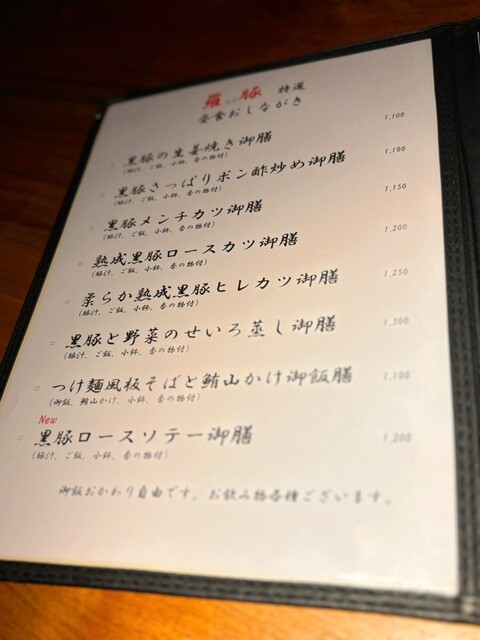 羅豚 特選
昼食おしながき
黒豚の生姜焼き御膳 1,100
(豚汁、ご飯、小鉢、香の物付)
黒豚さっぱりポン酢炒め御膳 1,100
(豚汁、ご飯、小鉢、香の物付)
黒豚メンチカツ御膳 1,150
(豚汁、ご飯、小鉢、香の物付)
熟成黒豚ロースカツ御膳 1,200
(豚汁、ご飯、小鉢、香の物付)
柔らか熟成黒豚ヒレカツ御膳 1,250
(豚汁、ご飯、小鉢、香の物付)
黒豚と野菜のせいろ蒸し御膳 1,300
(豚汁、ご飯、小鉢、香の物付)
つけ麺風板そばと鮪山かけ御飯膳 1,100
(御飯、鮪山かけ、小鉢、香の物付)
New
黒豚ロースソテー御膳 1,200
(豚汁、ご飯、小鉢、香の物付)
御飯おかわり自由です。お飲み物各種ございます。